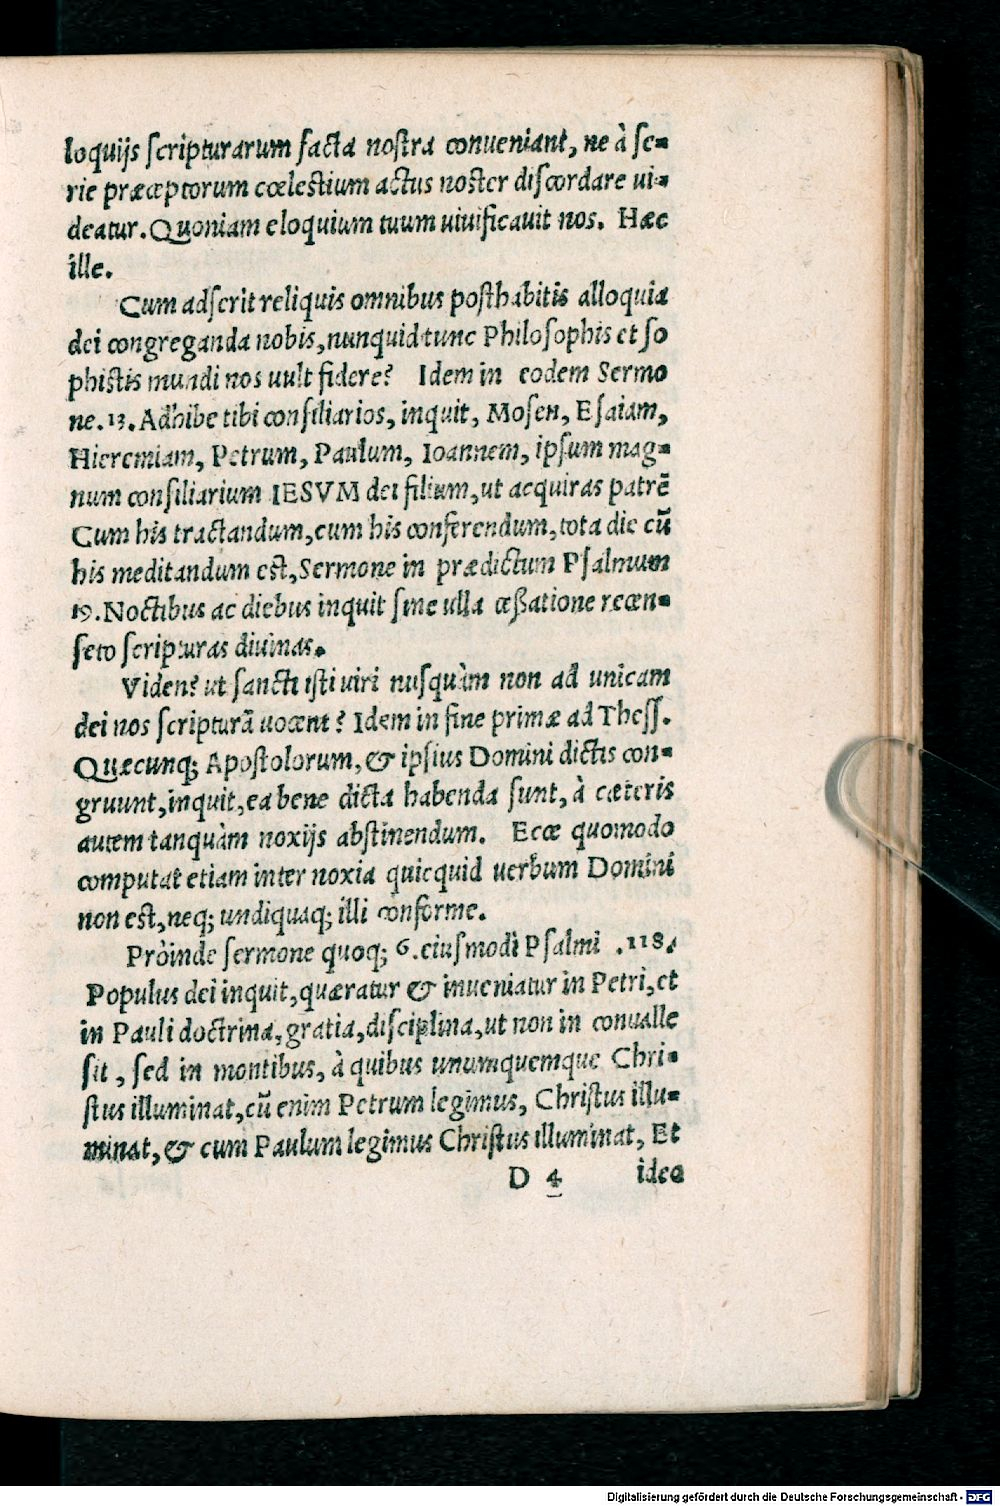 loquijs scripturarum facta nostra conueniant, ne à se-
rie præceptorum cœlestium actus noster discordare ui-
deatur. Quoniam eloquium tuum uiuificauit nos. Hæc
ille.
Cum adserit reliquis omnibus posthabitis alloquia
dei congreganda nobis, nunquid tunc Philosophis et so
phistis mundi nos uult fidere? Idem in eodem Sermo
ne. 13. Adhibe tibi consiliarios, inquit, Mosen, Esaiam,
Hieremiam, Petrum, Paulum, Ioannem, ipsum mag-
num consiliarium IESVM dei filium, ut acquiras patrẽ
Cum his tractandum, cum his conferendum, tota die cũ
his meditandum est, Sermone in prædictum Psalmum
19. Noctibus ac diebus inquit sine ulla cessatione recen-
seto scripturas diuinas.
Viden? ut sancti isti uiri nusquàm non ad unicam
dei nos scripturã uocent? Idem in fine primæ ad Thess.
Quæcunq; Apostolorum, & ipsius Domini dictis con-
gruunt, inquit, ea bene dicta habenda sunt, à cæteris
autem tanquàm noxijs abstinendum. Ecce quomodo
computat etiam inter noxia quicquid uerbum Domini
non est, neq; undiquaq; illi conforme.
Pròinde sermone quoq; 6. eiusmodi Psalmi .118.
Populus dei inquit, quæratur & inueniatur in Petri, et
in Pauli doctrina, gratia, disciplina, ut non in conualle
sit, sed in montibus, à quibus unumquemque Chri-
stus illuminat, cũ enim Petrum legimus, Christus illu-
minat, & cum Paulum legimus Christus illuminat, Et
D 4 ideo
Digitalisierung gefördert durch die Deutsche Forschungsgemeinschaft - DFG